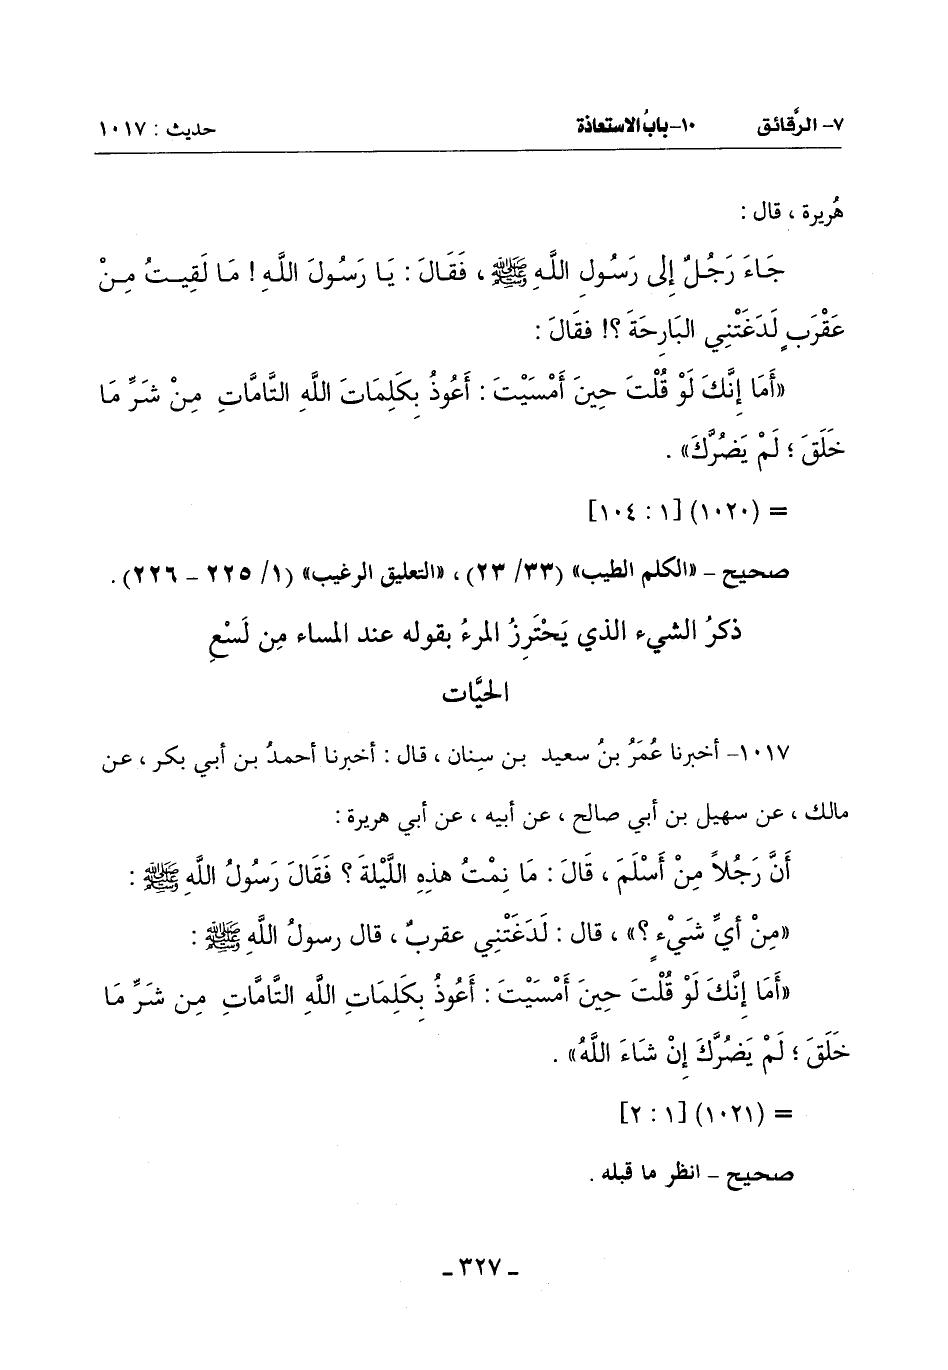 ٧- الرَّقائق ١٠-بابُ الاستعاذة حديث : ١٠١٧
هُريرة ، قال :
جَاءَ رَجُلٌ إلى رَسُولِ اللَّهِ ﷺ ، فَقَالَ : يَا رَسُولَ اللَّهِ ! مَا لَقِيتُ مِنْ
عَقْرَبٍ لَدَغَتْنِي البَارِحَةَ ؟! فقَالَ :
«أَمَا إِنَّكَ لَوْ قُلْتَ حِينَ أَمْسَيْتَ : أَعُوذُ بِكَلِمَاتَ اللَّهِ التَّامَّاتِ مِنْ شَرِّ مَا
خَلَقَ ؛ لَمْ يَضُرَّكَ» .
= (١٠٢٠) [١ : ١٠٤]
صحيح – «الكلم الطيب» (٢٣/ ٣٣) ، «التعليق الرغيب» (١/ ٢٢٥ – ٢٢٦) .
ذكرُ الشيء الذي يَحْتَرِزُ المرءُ بقوله عند المساء مِن لَسْعِ
الحيَّات
١٠١٧- أخبرنا عُمَرُ بنُ سعيد بن سِنان ، قال : أخبرنا أحمدُ بن أبي بكر ، عن
مالك ، عن سهيل بن أبي صالح ، عن أبيه ، عن أبي هريرة :
أَنَّ رَجُلاً مِنْ أَسْلَمَ ، قَالَ : مَا نِمْتُ هذِهِ اللَّيْلَةَ ؟ فَقَالَ رَسُولُ اللَّهِ ﷺ :
«مِنْ أيِّ شَيْءٍ ؟» ، قال : لَدَغَتْنِي عقربٌ ، قال رسولُ اللَّهِ ﷺ :
«أَمَا إِنَّكَ لَوْ قُلْتَ حِينَ أَمْسَيْتَ : أَعُوذُ بِكَلِمَاتِ اللَّهِ التَّامَّاتِ مِن شَرِّ مَا
خَلَقَ ؛ لَمْ يَضُرَّكَ إِنْ شَاءَ اللَّهُ» .
= (١٠٢١) [١ : ٢]
صحيح – انظر ما قبله .
ـ ٣٢٧ ـ